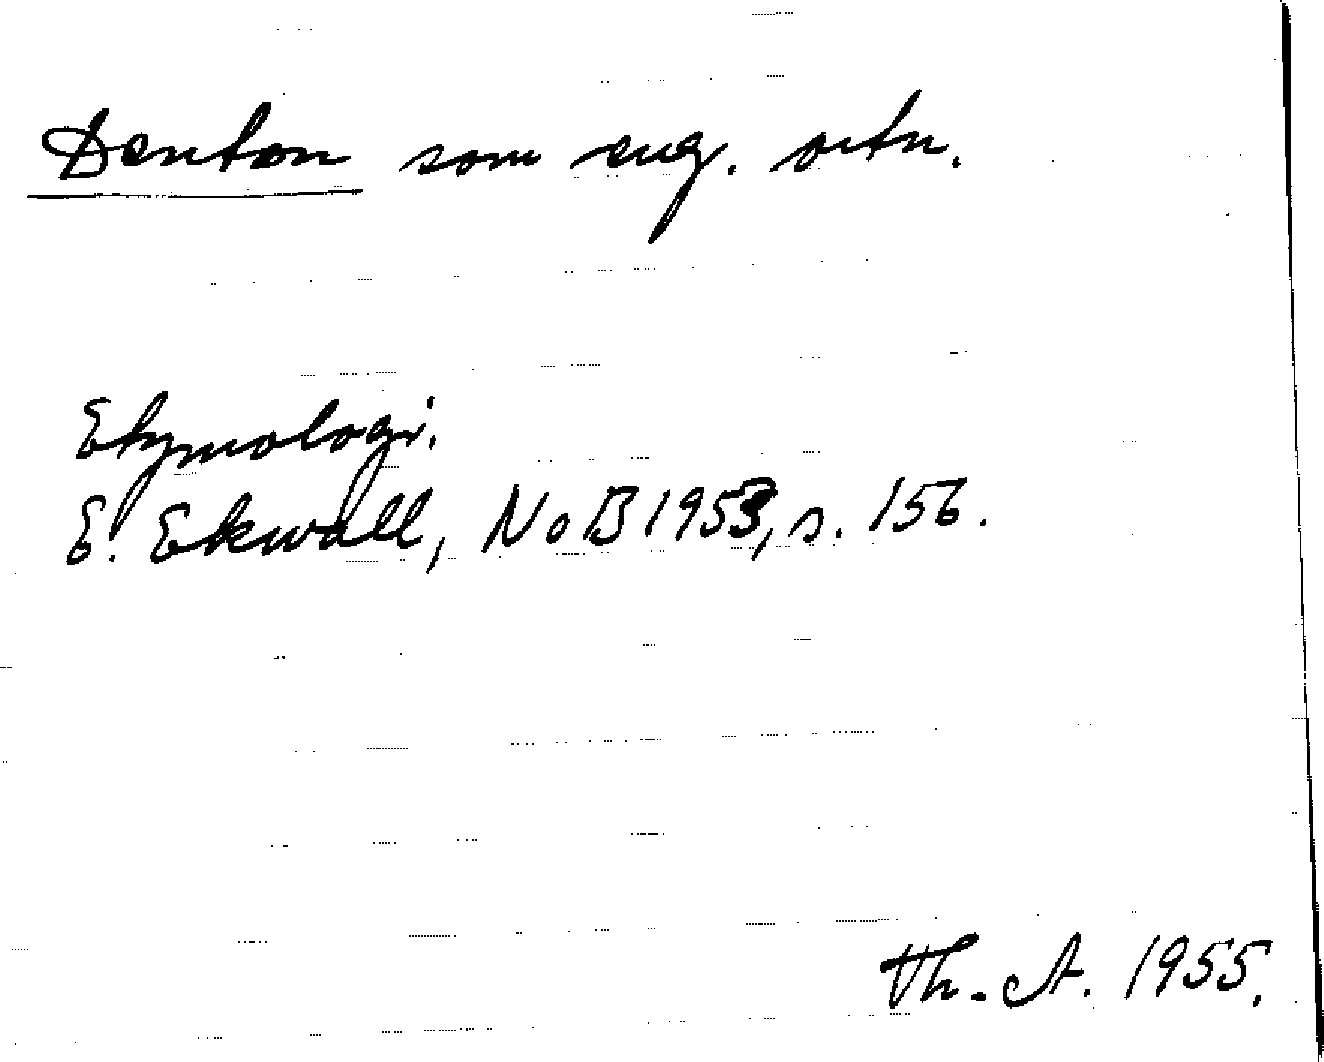 Denton som eng. ortn.
Etymologi.
E. Ekwall, NoB 1953, s. 156.
Th. A. 1955.